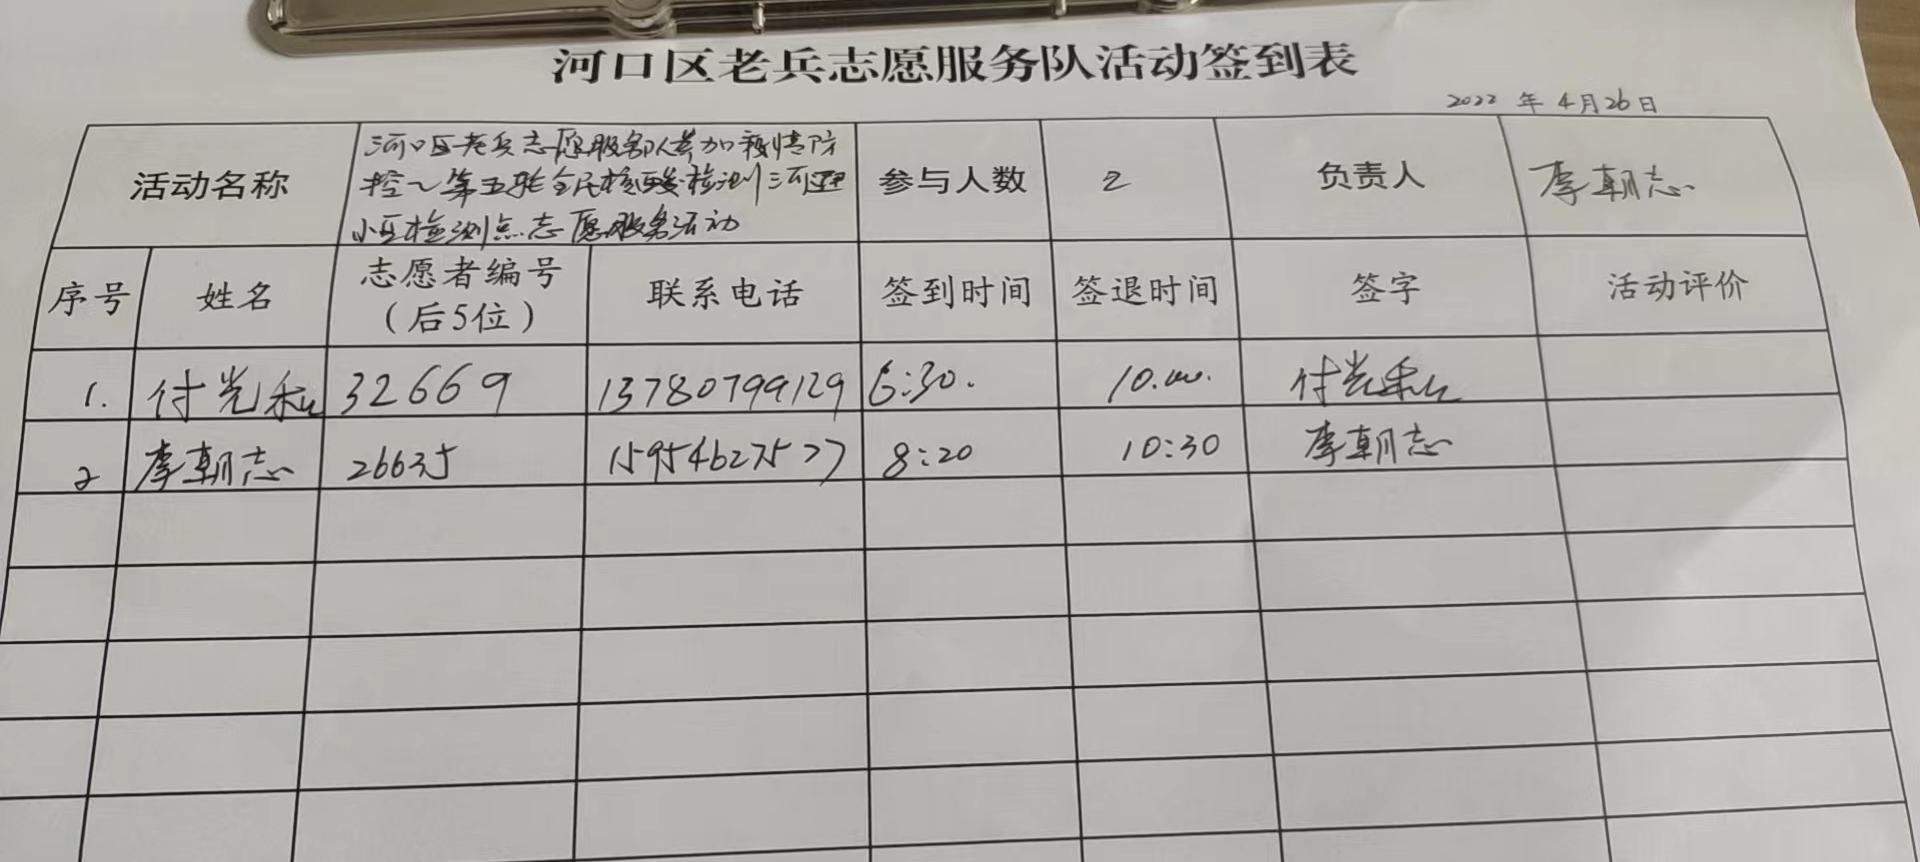 河口区老兵志愿服务队活动签到表
2022 年 4月26日
活动名称
河口区老兵志愿服务队参加疫情防
控～第五轮全民核酸检测河
小区检测点志愿服务活动
参与人数 2 负责人 李朝志
序号 姓名 志愿者编号 联系电话 签到时间 签退时间 签字 活动评价
（后5位）
1. 付光和 32669 13780799129 6:30. 10.00. 付光和
2 李朝志 26635 15954627577 8:20 10:30 李朝志